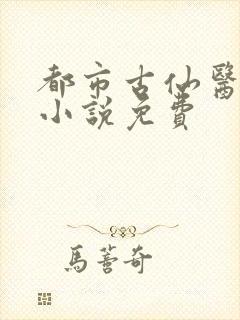 都市古仙醫
小說免費
馬蕾奇